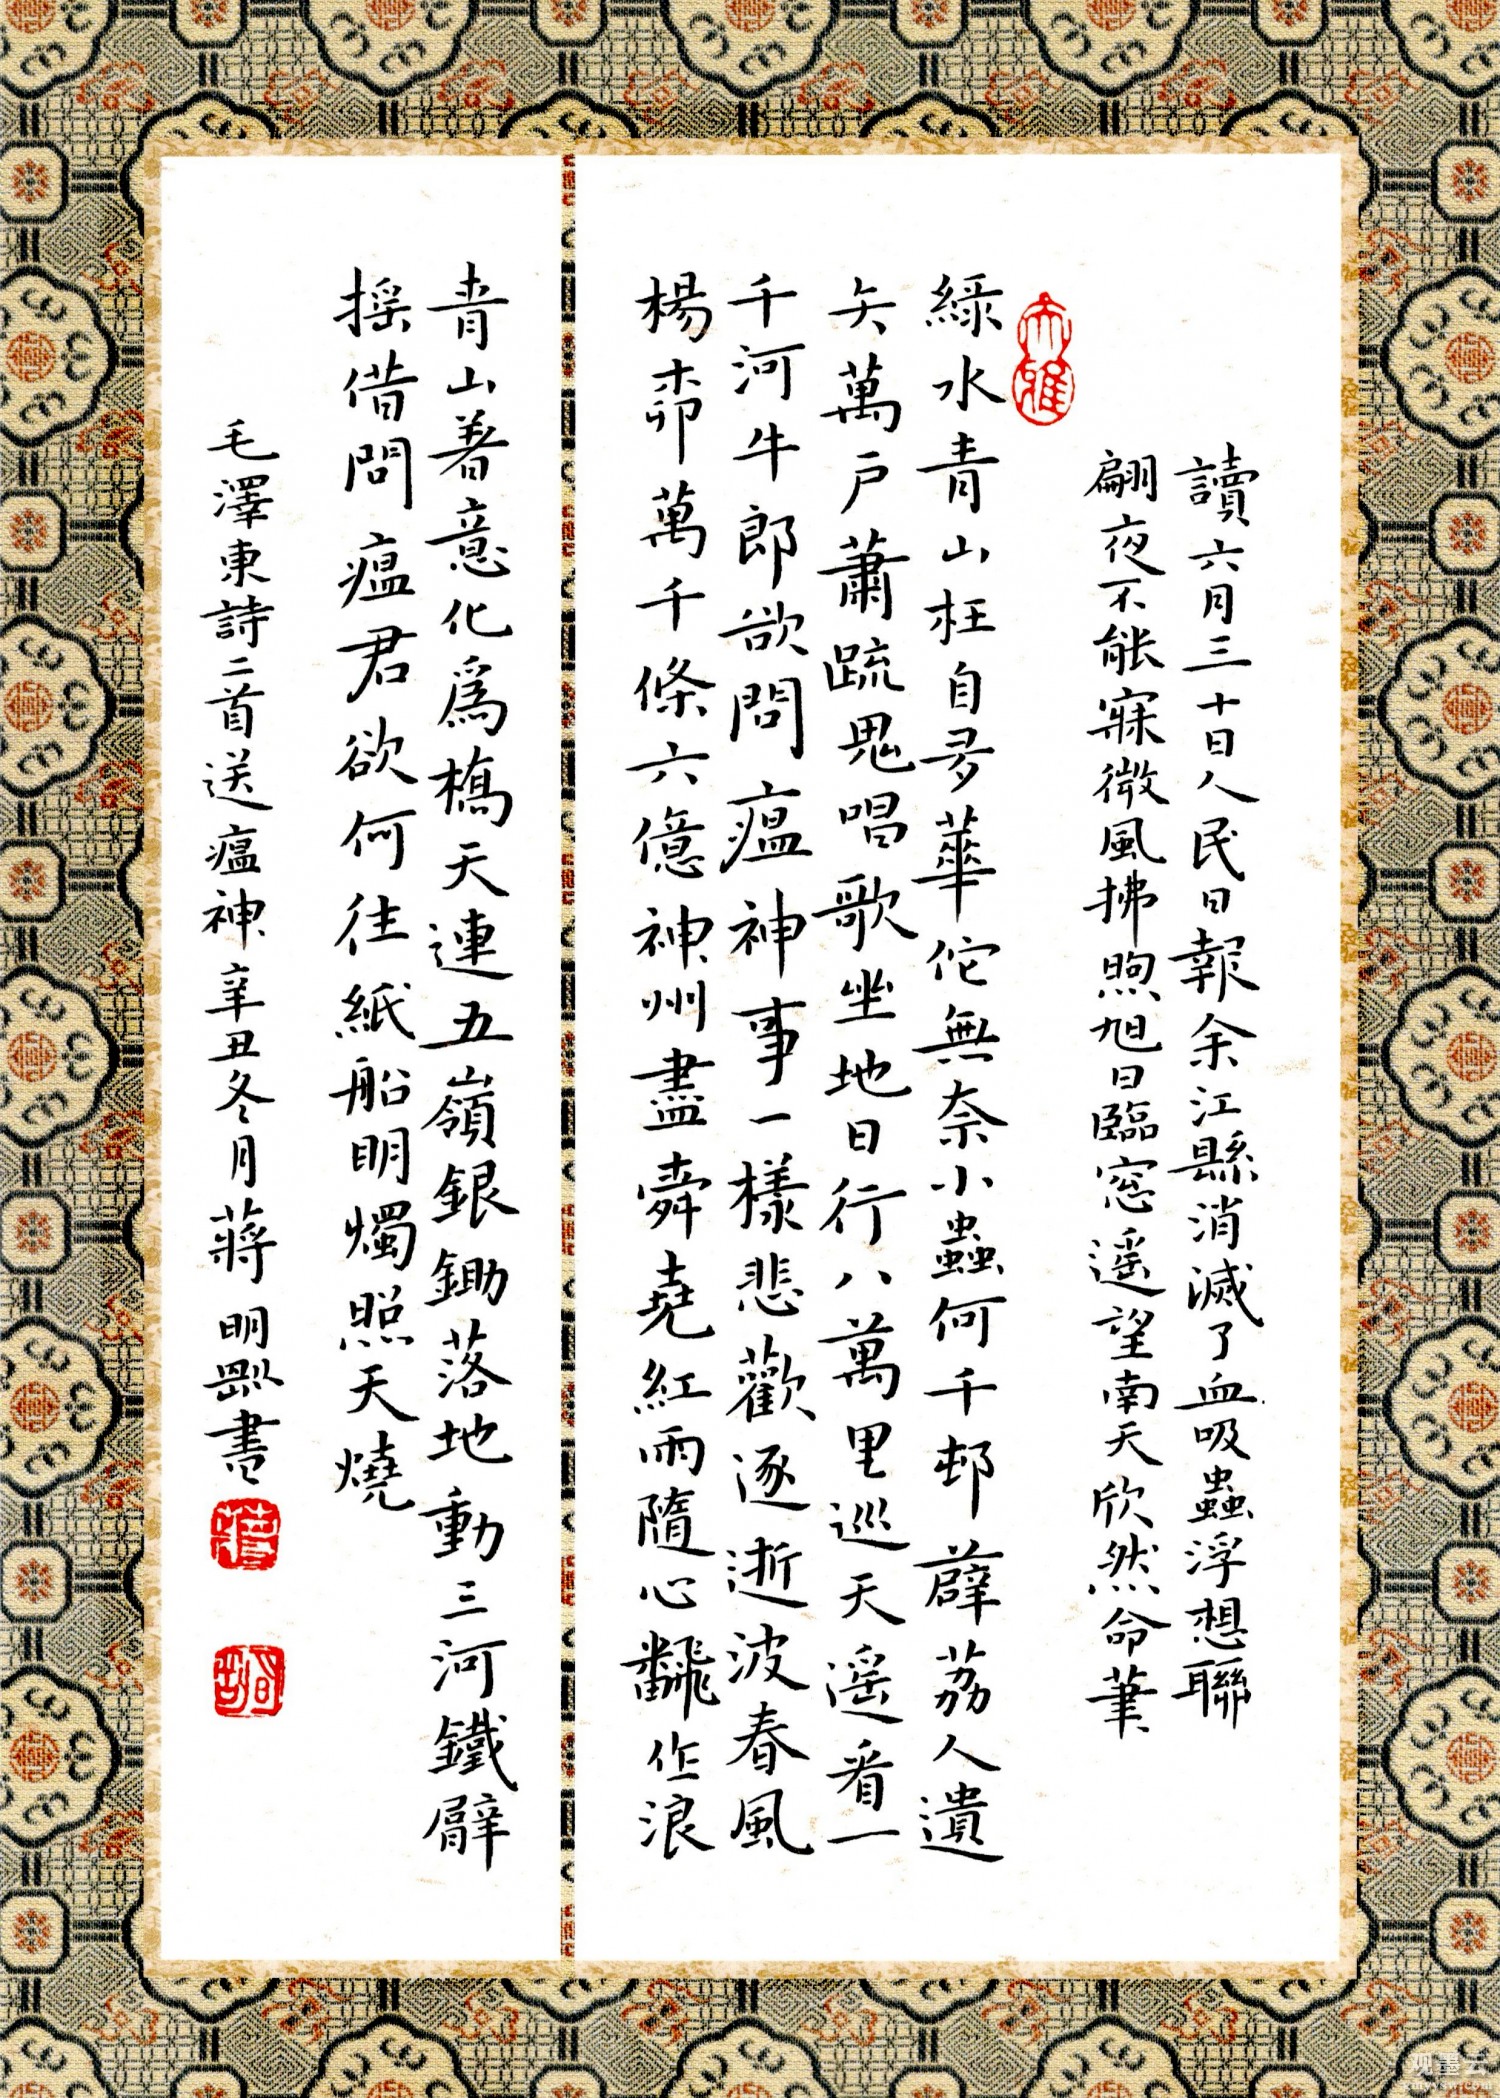 讀六月三十日人民日報余江縣消滅了血吸蟲浮想聯
翩夜不能寐微風拂煦旭日臨窓遥望南天欣然命筆
大雅
綠水青山枉自多華佗無奈小蟲何千邨薜荔人遺
矢萬戶蕭疏鬼唱歌坐地日行八萬里巡天遥看一
千河牛郎欲問瘟神事一樣悲歡逐逝波春風
楊柳萬千條六億神州盡舜堯紅雨隨心飜作浪
青山著意化爲橋天連五嶺銀鋤落地動三河鐵臂
摇借問瘟君欲何往紙船明燭照天燒
毛澤東詩二首送瘟神辛丑冬月蔣明書
观墨云